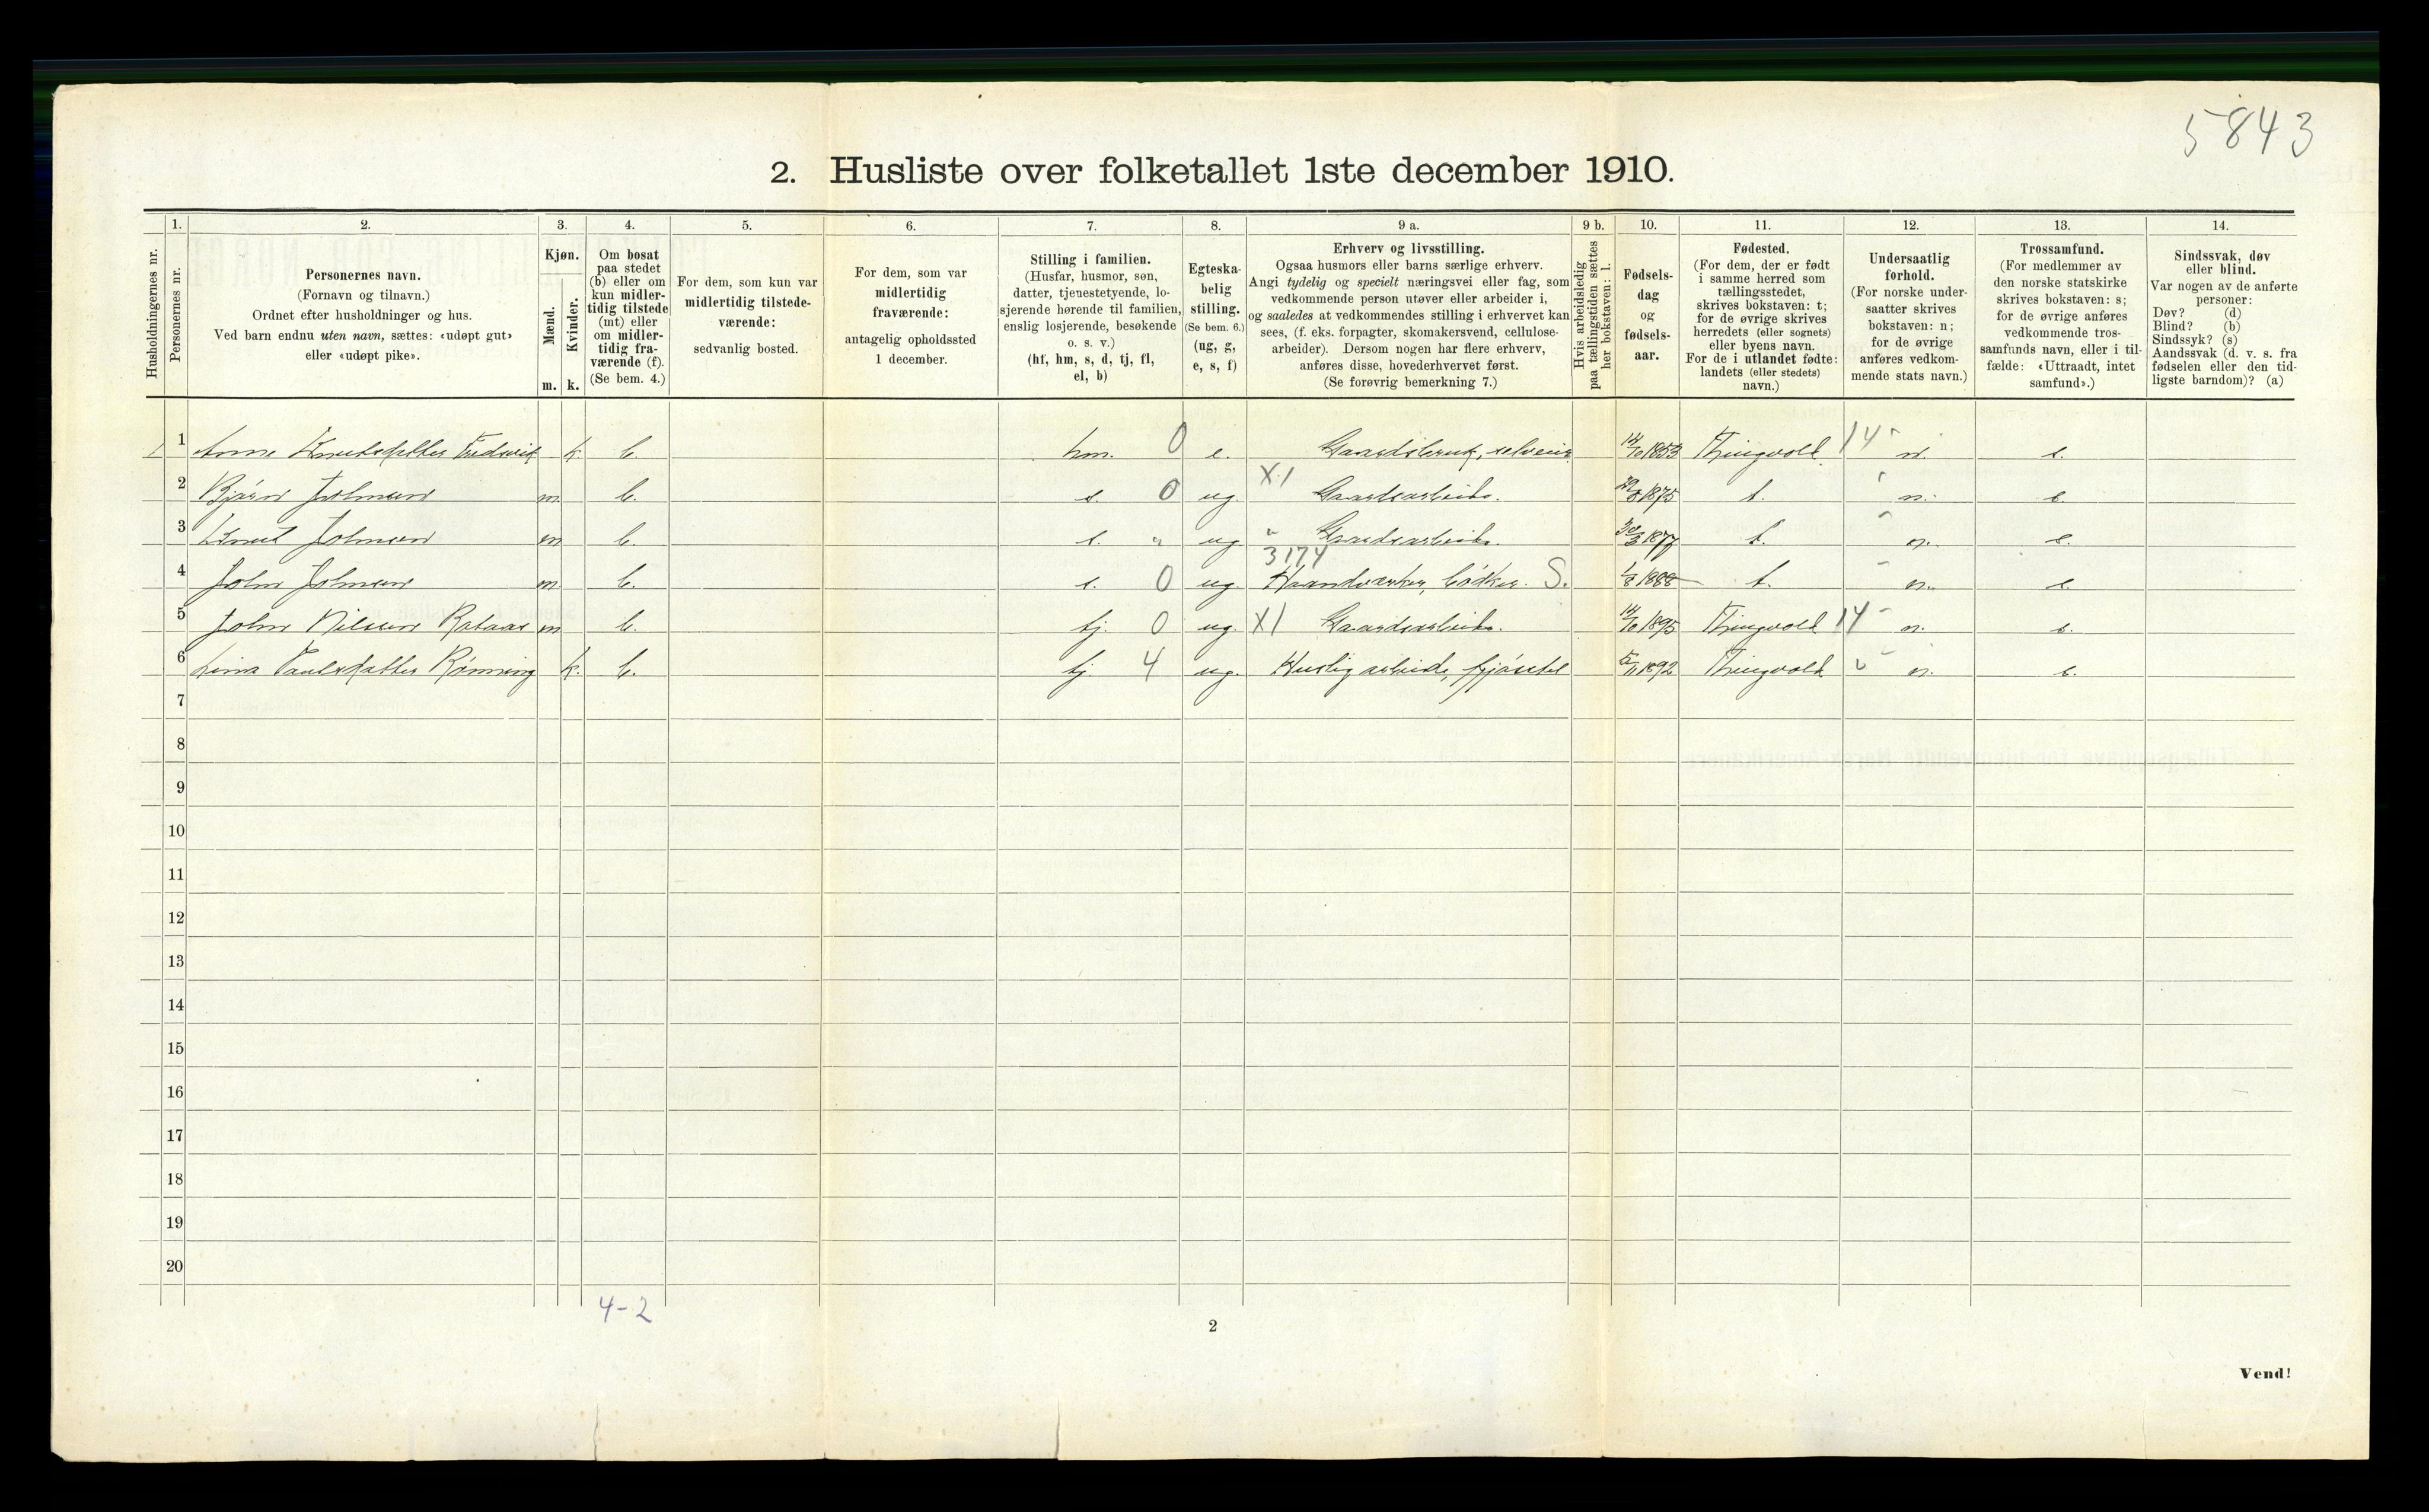 5843
2. Husliste over folketallet 1ste december 1910.
Husholdningernes nr.
1. Personernes nr.
2. Personernes navn.
(Fornavn og tilnavn.)
Ordnet efter husholdninger og hus.
Ved barn endnu uten navn, sættes: «udøpt gut»
eller «udøpt pike».
3. Kjøn.
Mænd. m.
Kvinder. k.
4. Om bosat
paa stedet
(b) eller om
kun midler-
tidig tilstede
(mt) eller
om midler-
tidig fra-
værende (f).
(Se bem. 4.)
5. For dem, som kun var
midlertidig tilstede-
værende:
sedvanlig bosted.
6. For dem, som var
midlertidig
fraværende:
antagelig opholdssted
1 december.
7. Stilling i familien.
(Husfar, husmor, søn,
datter, tjenestetyende, lo-
sjerende hørende til familien,
enslig losjerende, besøkende
o. s. v.)
(hf, hm, s, d, tj, fl,
el, b)
8. Egteska-
belig
stilling.
(Se bem. 6.)
(ug, g,
e, s, f)
9 a. Erhverv og livsstilling.
Ogsaa husmors eller barns særlige erhverv.
Angi tydelig og specielt næringsvei eller fag, som
vedkommende person utøver eller arbeider i,
og saaledes at vedkommendes stilling i erhvervet kan
sees, (f. eks. forpagter, skomakersvend, cellulose-
arbeider). Dersom nogen har flere erhverv,
anføres disse, hovederhvervet først.
(Se forøvrig bemerkning 7.)
9 b. Hvis arbeidsledig
paa tællingstiden sættes
her bokstaven: l.
10. Fødsels-
dag
og
fødsels-
aar.
11. Fødested.
(For dem, der er født
i samme herred som
tællingsstedet,
skrives bokstaven: t;
for de øvrige skrives
herredets (eller sognets)
eller byens navn.
For de i utlandet fødte:
landets (eller stedets)
navn.)
12. Undersaatlig
forhold.
(For norske under-
saatter skrives
bokstaven: n;
for de øvrige
anføres vedkom-
mende stats navn.)
13. Trossamfund.
(For medlemmer av
den norske statskirke
skrives bokstaven: s;
for de øvrige anføres
vedkommende tros-
samfunds navn, eller i til-
fælde: «Uttraadt, intet
samfund».)
14. Sindssvak, døv
eller blind.
Var nogen av de anførte
personer:
Døv? (d)
Blind? (b)
Sindssyk? (s)
Aandssvak (d. v. s. fra
fødselen eller den tid-
ligste barndom)? (a)
1 1 Knutsdatter k. b. hm. 0 e. Gaardsbruk, selveier 1853 Thingvold 14 n. s.
2 Bjørn Johnsen m b. s. 0 ug. X1 Gaardsarbeide. 1875 t. n. s.
3 Knut Johnsen m b. s. " ug " Gaardsarbeide. 1877 t. n. s.
4 John Johnsen m. b. s. 0 ug. 3174 Haandverker, bödker. S. 1888 t. n. s.
5 John Nilsen m b. tj. 0 ug. X1 Gaardsarbeide. 1895 Thingvold 14 n. s.
6 Lina Rönning k. b. tj 4 ug. Huslig arbeide, fjöstel 1892 Thingvold n. s.
7
8
9
10
11
12
13
14
15
16
17
18
19
20
4-2
2
Vend!